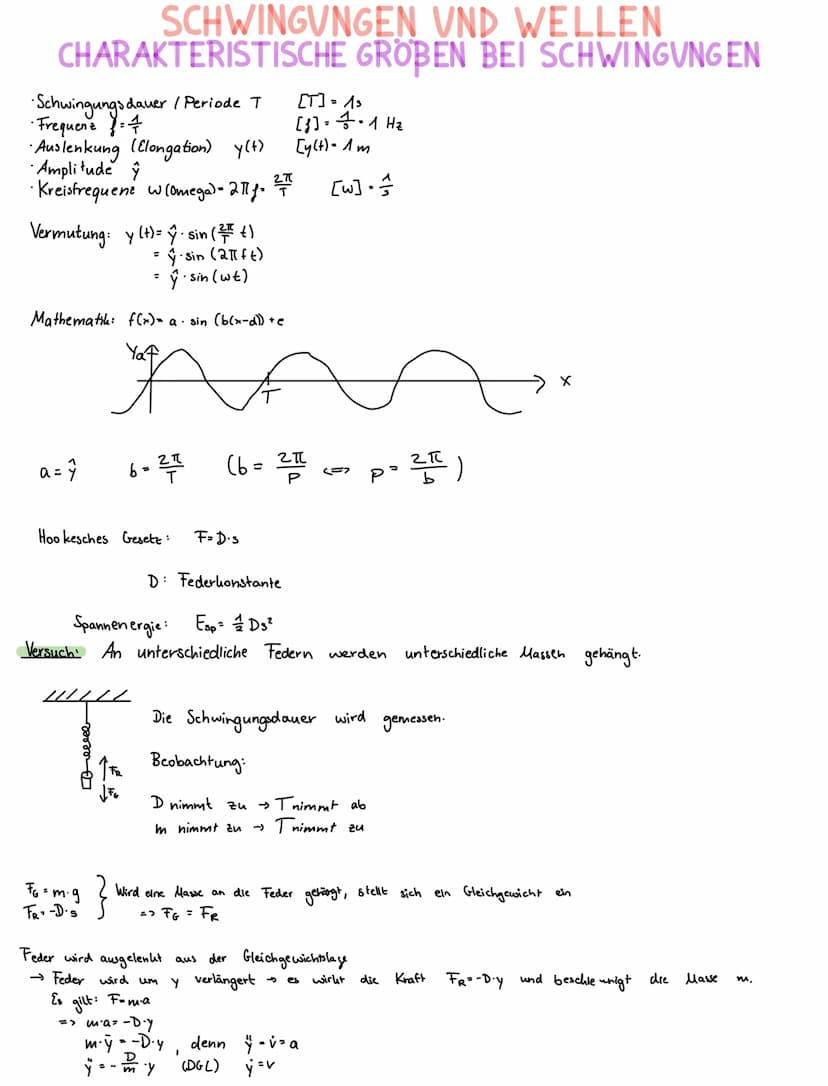 SCHWINGUNGEN UND WELLEN
CHARAKTERISTISCHE GRÖßEN BEI SCHWINGUNGEN
· Schwingungsdauer / Periode T [T] = 1s
· Frequenz f = 1/T [f] = 1/s = 1 Hz
· Auslenkung (Elongation) y(t) [y(t) = 1 m
· Amplitude ŷ
· Kreisfrequenz w (Omega) = 2πf = 2π/T [w] = 1/s
Vermutung: y(t) = ŷ · sin (2π/T t)
= ŷ · sin (2πft)
= ŷ · sin (wt)
Mathematik: f(x) = a · sin (b(x-d)) + e
Ya
T
x
a = ŷ b = 2π/T (b = 2π/P <=> p = 2π/b)
Hookesches Gesetz: F = D·s
D: Federkonstante
Spannenergie: Esp = 1/2 Ds²
Versuch: An unterschiedliche Federn werden unterschiedliche Massen gehängt.
Die Schwingungsdauer wird gemessen.
FR
FG
Beobachtung:
D nimmt zu → T nimmt ab
m nimmt zu → T nimmt zu
FG = m·g } Wird eine Masse an die Feder gehängt, stellt sich ein Gleichgewicht ein
FR = -D·s => FG = FR
Feder wird ausgelenkt aus der Gleichgewichtslage
→ Feder wird um y verlängert → es wirkt die Kraft FR = -D·y und beschleunigt die Masse m.
Es gilt: F = m·a
=> m·a = -D·y
m·ÿ = -D·y , denn ÿ = v̇ = a
ÿ = - D/m · y (DGL) ẏ = v